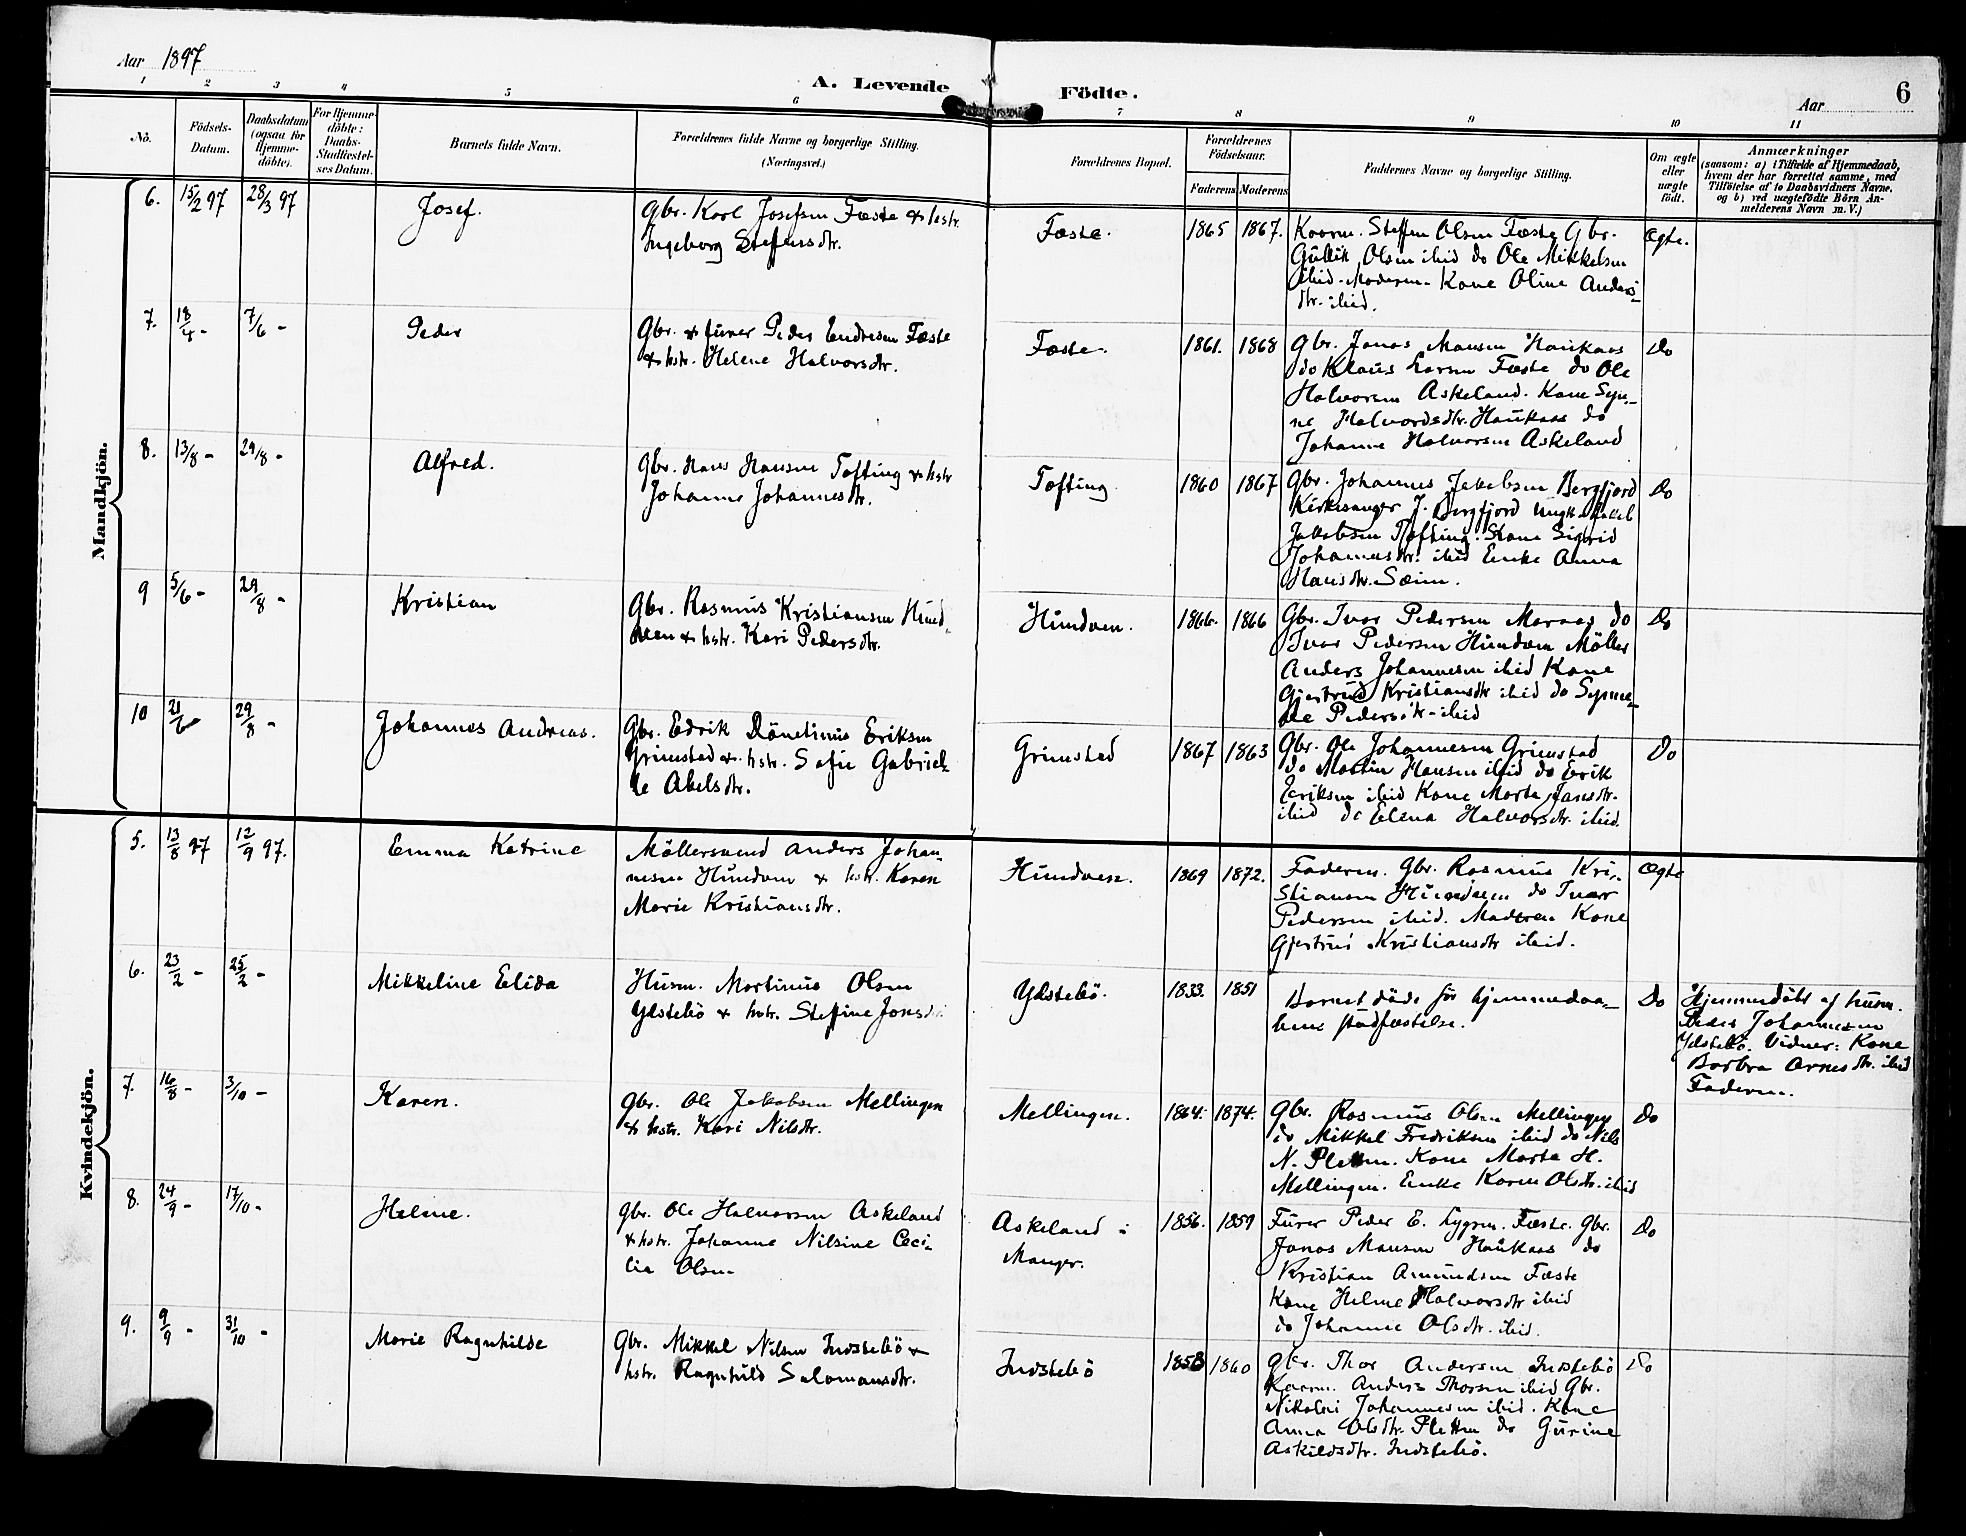 Aar 1897
A. Levende Födte.
Aar
6
1 2 3 4 5 6 7 8 9 10 11
No.
Födsels-
Datum.
Daabsdatum
(ogsaa for
Hjemme-
döbte).
For Hjemme-
döbte:
Daabs-
Stadfæstel-
ses Datum.
Barnets fulde Navn.
Forældrenes fulde Navne og borgerlige Stilling.
(Næringsvei.)
Forældrenes Bopæl.
Forældrenes
Födselsaar.
Faderens Moderens
Faddernes Navne og borgerlige Stilling.
Om ægte
eller
uægte
födt.
Anmærkninger
(saasom: a) i Tilfælde af Hjemmedaab,
hvem der har forrettet samme, med
Tilföielse af to Daabsvidners Navne.
og b) ved uægtefödte Börn An-
melderens Navn m. V.)
Mandkjön.
6. 15/2 97 28/3 97
Josef.
Gbr. Karl Josefsen Fæste & hstr.
Ingeborg Steffensdtr.
Fæste.
1865 1867.
Kaarm. Steffen Olsen Fæste Gbr.
Gullik Olsen ibid do Ole Mikkelsen
ibid. Moderen. Kone Oline Anders-
dtr. ibid.
Ægte.
7. 18/4 - 7/6 -
Peder
Gbr. & furer Peder Endresen Fæste
& hstr. Helene Halvorsdtr.
Fæste.
1861. 1868
Gbr. Jonas Monsen Haukaas
do Klaus Larsen Fæste do Ole
Halvorsen Askeland. Kone Syn-
ne Halvordsdtr. Haukaas do
Johanne Halvorsen Askeland
Do
8. 13/8 - 29/8 -
Alfred.
Gbr. Hans Hansen Tofting & hstr
Johanne Johannesdtr.
Tofting
1860 1867
Gbr. Johannes Jakobsen Bergfjord
Kirkesanger J. Bergfjord Ungk.
Jakobsen Tofting. Kone Sigrid
Johannesdtr. ibid Enke Anna
Hansdtr. Sæim.
Do
9 5/6 - 29/8 -
Kristian
Gbr. Rasmus Kristiansen Hund-
ven & hstr. Kari Pedersdtr.
Hundven.
1866. 1866
Gbr. Ivar Pedersen Maraas do
Ivar Pedersen Hundven Möller
Anders Johannesen ibid Kone
Gjertrud Kristiansdtr ibid do Synne-
ve Pedersdtr - ibid
Do
10 21/6 29/8 -
Johannes Andreas.
Gbr. Edvik Eriksen
Grimstad & hstr. Sofie Gabriel-
le Abelsdtr.
Grimstad
1867 1863
Gbr. Ole Johannesen Grimstad
do Martin Hansen ibid do Erik
Eriksen ibid Kone Marta Jansdtr.
ibid do Elena Halvorsdtr. ibid.
Do
Kvindekjön.
5. 13/8 97 12/9 97.
Emma Katrine
Möllersvend Anders Johan-
nesen Hundven & hstr. Karen
Marie Kristiansdtr.
Hundven.
1869 1872.
Faderen. Gbr. Rasmus Kri-
stiansen Hundven do Ivar
Pedersen ibid. Madren Kone
Gjertrud Kristiansdtr ibid.
Ægte
6. 23/2 - 25/2 -
Mikkeline Elida
Husm. Martinus Olsen
Ydstebö & hstr. Steffine Jonsd
Ydstebö.
1833. 1851
Barnet döde för hjemmedaa-
bens stadfæstelse.
Do
Hjemmedöbt af husm.
Peder Johannesen
Ydstebö. Vidner: Kone
Barbra Arnesdtr. ibid
Faderen.
7. 16/8 - 3/10 -
Karen.
Gbr. Ole Jakobsen Mellingen
& hstr. Kari Nilsdtr.
Mellingen.
1864. 1874.
Gbr. Rasmus Olsen Mellingen
do Mikkel Fredriksen ibid do Nils
N. Pletten. Kone Marta H.
Mellingen. Enke Karen Olsdtr. ibid
Do
8. 24/9 - 17/10 -
Helene.
Gbr. Ole Halvorsen Askeland
& hstr. Johanne Nilsine Ceci-
lia Olsen.
Askeland i
Manger.
1856. 1859
Furer Peder E. Lygren. Fæste. Gbr.
Jonas Monsen Haukaas do
Kristian Amundsen Fæste
Kone Helene Halvorsdtr ibid
do Johanne Olsdtr. ibid.
Do
9. 9/9 - 31/10 -
Marie Ragnhilde
Gbr. Mikkel Nilsen Indstebö &
hstr. Ragnhild Salomonsdtr.
Indstebö
1858 1860
Gbr. Thor Andersen Indstebö
Kaarm. Anders Thorsen ibid Gbr.
Nikolai Johannesen ibid. Kone
Anna Olsdtr. Pletten do Gurine
Askildsdtr. Indstebö.
Do